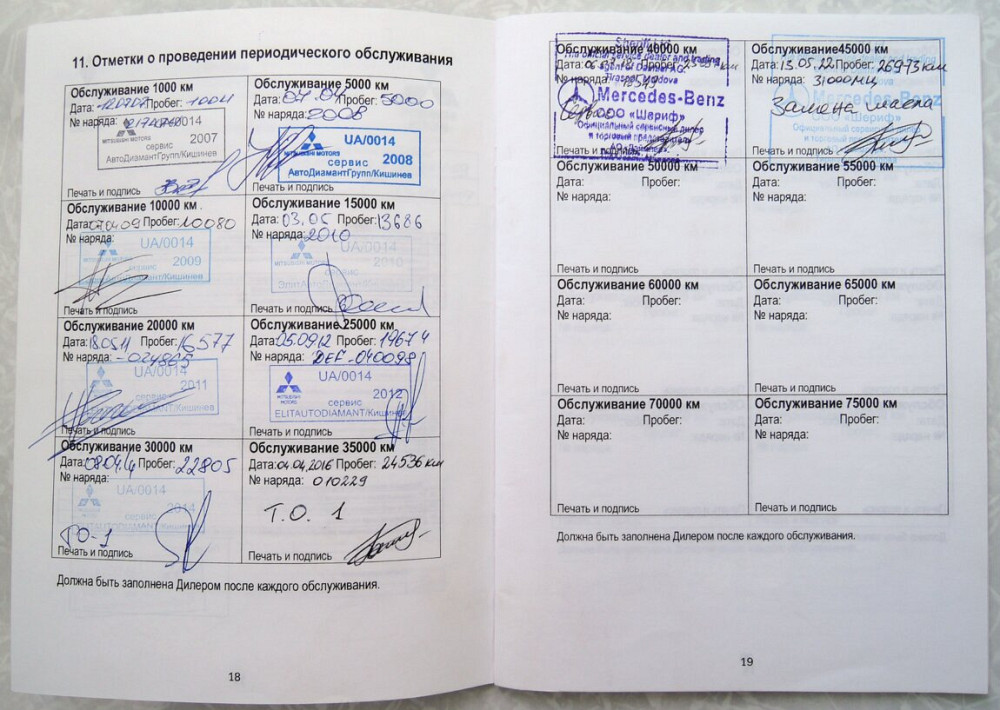 11. Отметки о проведении периодического обслуживания
Обслуживание 1000 км
Дата: Пробег: 1004
№ наряда:
UA/0014
MITSUBISHI MOTORS
2007
сервис
АвтоДиамантГрупп/Кишинев
Печать и подпись
Обслуживание 5000 км
Дата: 04.04 Пробег: 5000
№ наряда: 2008
UA/0014
MITSUBISHI MOTORS
сервис 2008
АвтоДиамантГрупп/Кишинев
Печать и подпись
Обслуживание 10000 км
Дата: Пробег: 10080
№ наряда:
UA/0014
2009
сервис
Печать и подпись
Обслуживание 15000 км
Дата: 03.05 Пробег: 13686
№ наряда: 2010
UA/0014
MITSUBISHI MOTORS
2010
сервис
Печать и подпись
Обслуживание 20000 км
Дата: 180511 Пробег: 16577
№ наряда: - 024865
UA/0014
2011
сервис
Печать и подпись
Обслуживание 25000 км
Дата: 050912 Пробег: 19674
№ наряда: DEF-040098
UA/0014
MITSUBISHI MOTORS
2012
сервис
ELITAUTODIAMANT/Кишинев
Печать и подпись
Обслуживание 30000 км
Дата: Пробег: 22805
№ наряда:
UA/0014
2014
сервис
ELITAUTODIAMANT/Кишинев
ТО-1
Печать и подпись
Обслуживание 35000 км
Дата: 04.04.2016 Пробег: 24536 км
№ наряда: 010229
Т.О. 1
Печать и подпись
Должна быть заполнена Дилером после каждого обслуживания.
18
Обслуживание 40000 км
Дата: Пробег: км
№ наряда:
official service dealer and trading
agent of Daimler AG.
Tiraspol, Moldova
Mercedes-Benz
ООО «Шериф»
Официальный сервисный дилер
и торговый представитель
Печать и подпись
Обслуживание 45000 км
Дата: 13.05.22 Пробег: 26973 км
№ наряда:
Замена масла
Mercedes-Benz
ООО «Шериф»
Официальный сервисный дилер
Печать и подпись
Обслуживание 50000 км
Дата: Пробег:
№ наряда:
Печать и подпись
Обслуживание 55000 км
Дата: Пробег:
№ наряда:
Печать и подпись
Обслуживание 60000 км
Дата: Пробег:
№ наряда:
Печать и подпись
Обслуживание 65000 км
Дата: Пробег:
№ наряда:
Печать и подпись
Обслуживание 70000 км
Дата: Пробег:
№ наряда:
Печать и подпись
Обслуживание 75000 км
Дата: Пробег:
№ наряда:
Печать и подпись
Должна быть заполнена Дилером после каждого обслуживания.
19